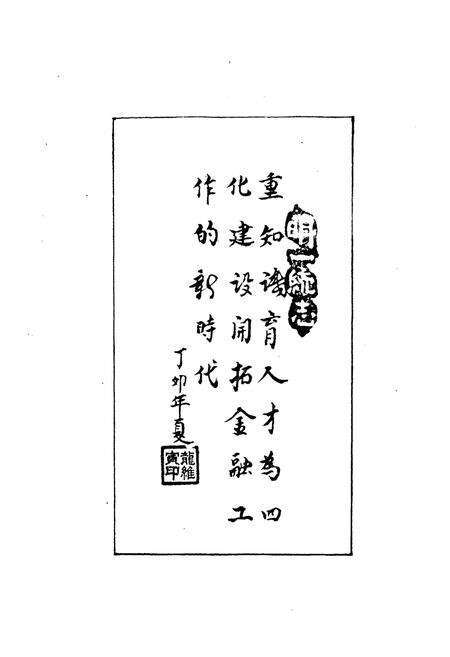 重知識育人才為四
化建設開拓金融工
作的新時代
丁卯年夏
龍維
寅印